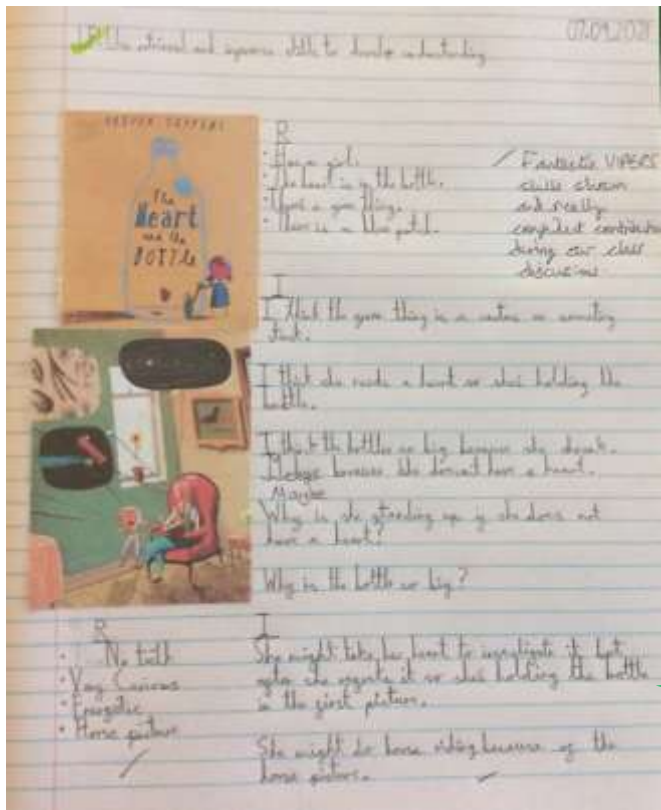 07.09.202
Use retrieval and inference skills to develop understanding
OLIVER JEFFERS
The
Heart
and the
BOTTLE
R
• a girl.
• The heart is in the bottle.
• a green thing.
• There is a blue patch.
Fantastic VIPERS
skills shown
and really
confident contributions
during our class
discussions
I
I think the green thing is a or something
I think she needs a heart so she's holding the
bottle.
I think the bottles so big because she
because she doesn't have a heart.
Maybe
Why is she standing up if she does not
have a heart?
Why is the bottle so big?
R
• No teeth
• Very Curious
• Energetic
• Horse picture
I
She might take her heart to investigate it but
after she regrets it so she's holding the bottle
in the first picture.
She might do horse riding because of the
horse picture.